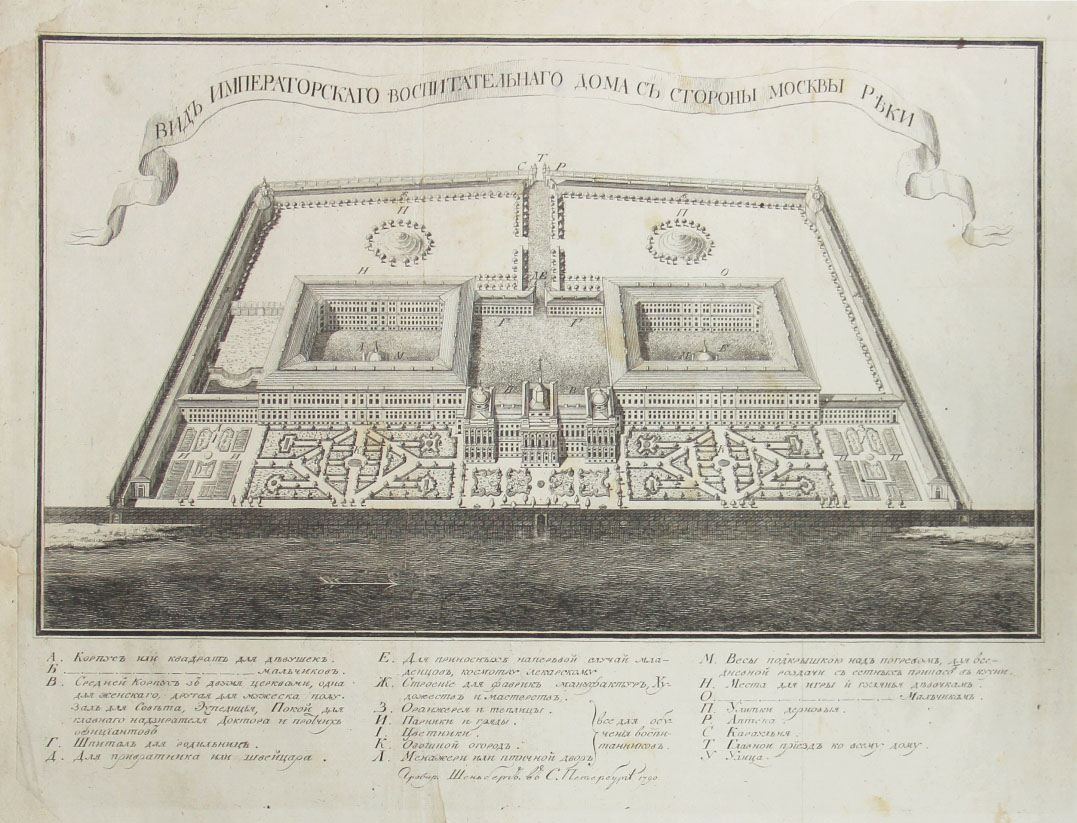 ВИДЪ ИМПЕРАТОРСКАГО ВОСПИТАТЕЛЬНАГО ДОМА СЪ СТОРОНЫ МОСКВЫ РѢКИ
С Т Р
П П
Н О
Г Г
А М М Б
В
А. Корпусъ или квадратъ для дѣвушекъ.
Б. мальчиковъ.
В. Средней Корпусъ зо двумя церквами, одна
для женскаго, другая для мужеска полу.
Залъ для Совѣта, Эхпедиція, Покой для
главнаго надзирателя Доктора и протчихъ
офиціантовъ
Г. Шпиталь для родильницъ.
Д. Для привратника или швейцара.
Е. Для приносныхъ наперьвой случай мла-
денцовъ, косматру лекарскому
Ж. Строеніе для фабрикъ мануфактуръ, Ху-
дожествъ и мастерствъ.
З. Оранжерея и теплицы.
И. Парники и гряды.
І. Цветники.
К. Овошной огородъ.
Л. Менажери или птичной дворъ
все для обу-
ченія воспи-
танниковъ.
М. Весы подкрышкою надъ погребомъ, для все-
дневной роздачи съ сетныхъ припасо въ кухни.
Н. Места для игры и гулянья дѣвачкамъ.
О. Мальчикамъ.
П. Улитки дерновыя.
Р. Аптека.
С. Караульня.
Т. Главной приездъ ко всему дому.
У. Улица.
Гравир. Шенбергъ въ С. Петербургѣ 1790